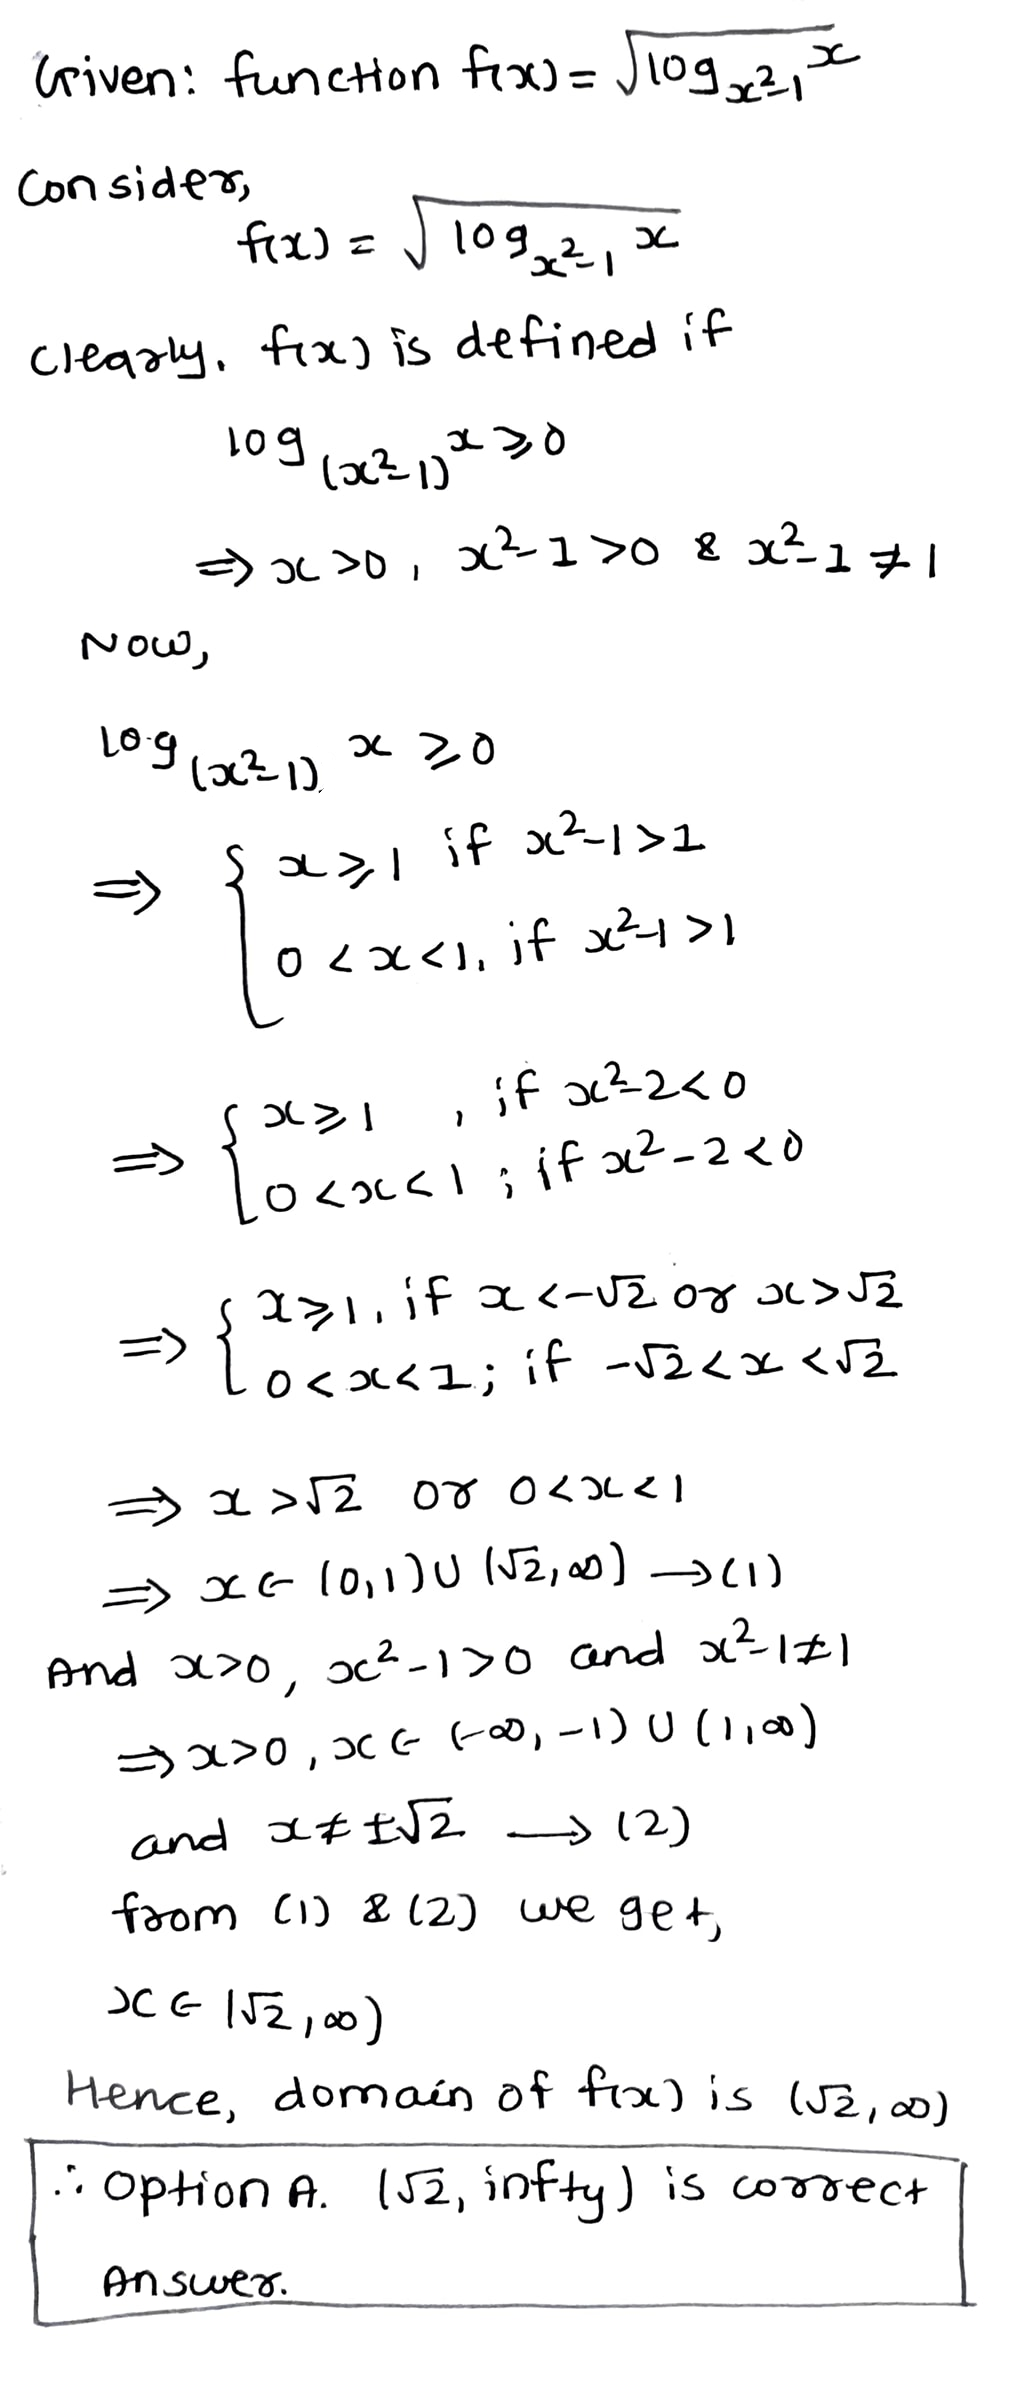 Given: function f(x) = √log_{x²-1} x
Consider,
f(x) = √log_{x²-1} x
Clearly. f(x) is defined if
log_{(x²-1)} x ≥ 0
⇒ x > 0, x²-1 > 0 & x²-1 ≠ 1
Now,
Log_{(x²-1)} x ≥ 0
⇒ { x ≥ 1 if x²-1 > 1
0 < x < 1, if x²-1 > 1
⇒ { x ≥ 1 , if x²-2 < 0
0 < x < 1 ; if x²-2 < 0
⇒ { x ≥ 1, if x < -√2 or x > √2
0 < x < 1; if -√2 < x < √2
⇒ x > √2 or 0 < x < 1
⇒ x ∈ (0,1) ∪ (√2, ∞) → (1)
And x > 0, x²-1 > 0 and x²-1 ≠ 1
⇒ x > 0, x ∈ (-∞, -1) ∪ (1, ∞)
and x ≠ ±√2 → (2)
from (1) & (2) we get,
x ∈ (√2, ∞)
Hence, domain of f(x) is (√2, ∞)
∴ Option A. (√2, infty) is correct
Answer.